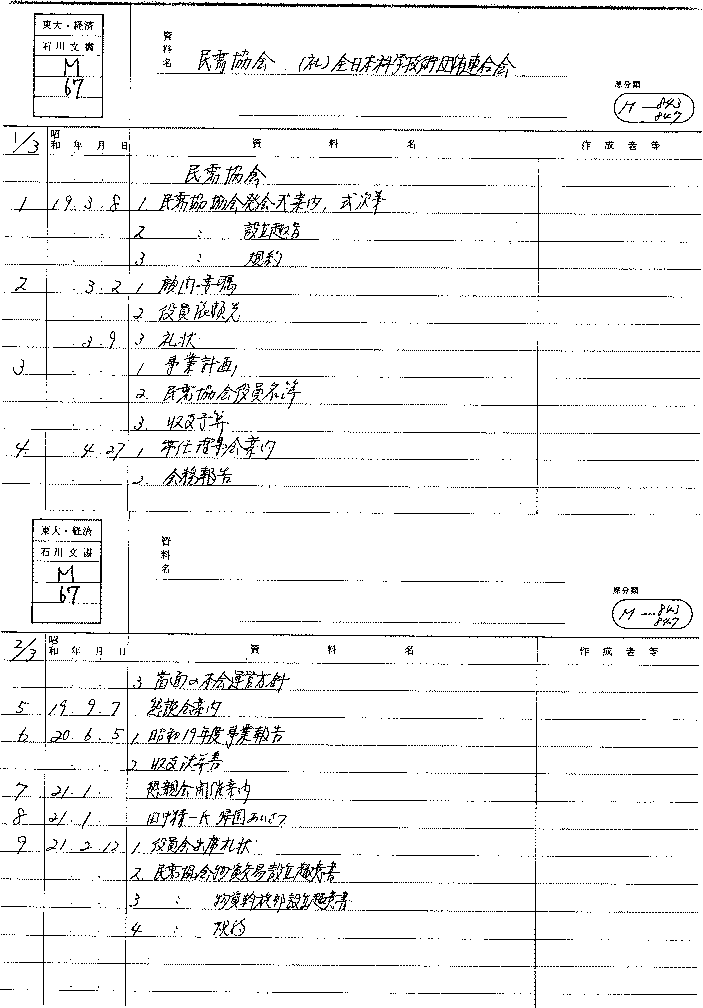 東大・経済
石川文書
M
67
資料名 民需協会 (社)全日本科学技術団体連合会
原分類
M—843
847
1/3 昭和 年 月 日 資料名 作成者等
民需協会
1 19.3.8 1. 民需協会発会式案内, 式次第
2 〃 設立趣旨
3 〃 規約
2 3.2 1 顧問委嘱
2 役員依頼
3.9 3 礼状
3 1 事業計画
2. 民需協会役員名簿
3. 収支予算
4. 4.27 1 案内
2. 会務報告
東大・経済
石川文書
M
67
資料名
原分類
M—843
847
2/3 昭和 年 月 日 資料名 作成者等
3 当面の本会運営方針
5 19.9.7 懇談会案内
6 20.6.5 1. 昭和19年度事業報告
2 収支決算書
7 21.1. 懇親会開催案内
8 21.1 田中 一氏 帰国あいさつ
9 21.2.12 1. 役員会出席礼状
2. 民需協会 設立趣意書
3 〃 設立趣意書
4 〃 規約